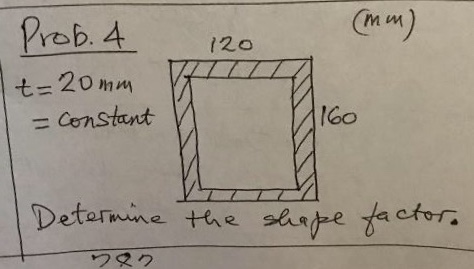 Prob. 4
(mm)
120
t = 20 mm
= constant
160
Determine the shape factor.